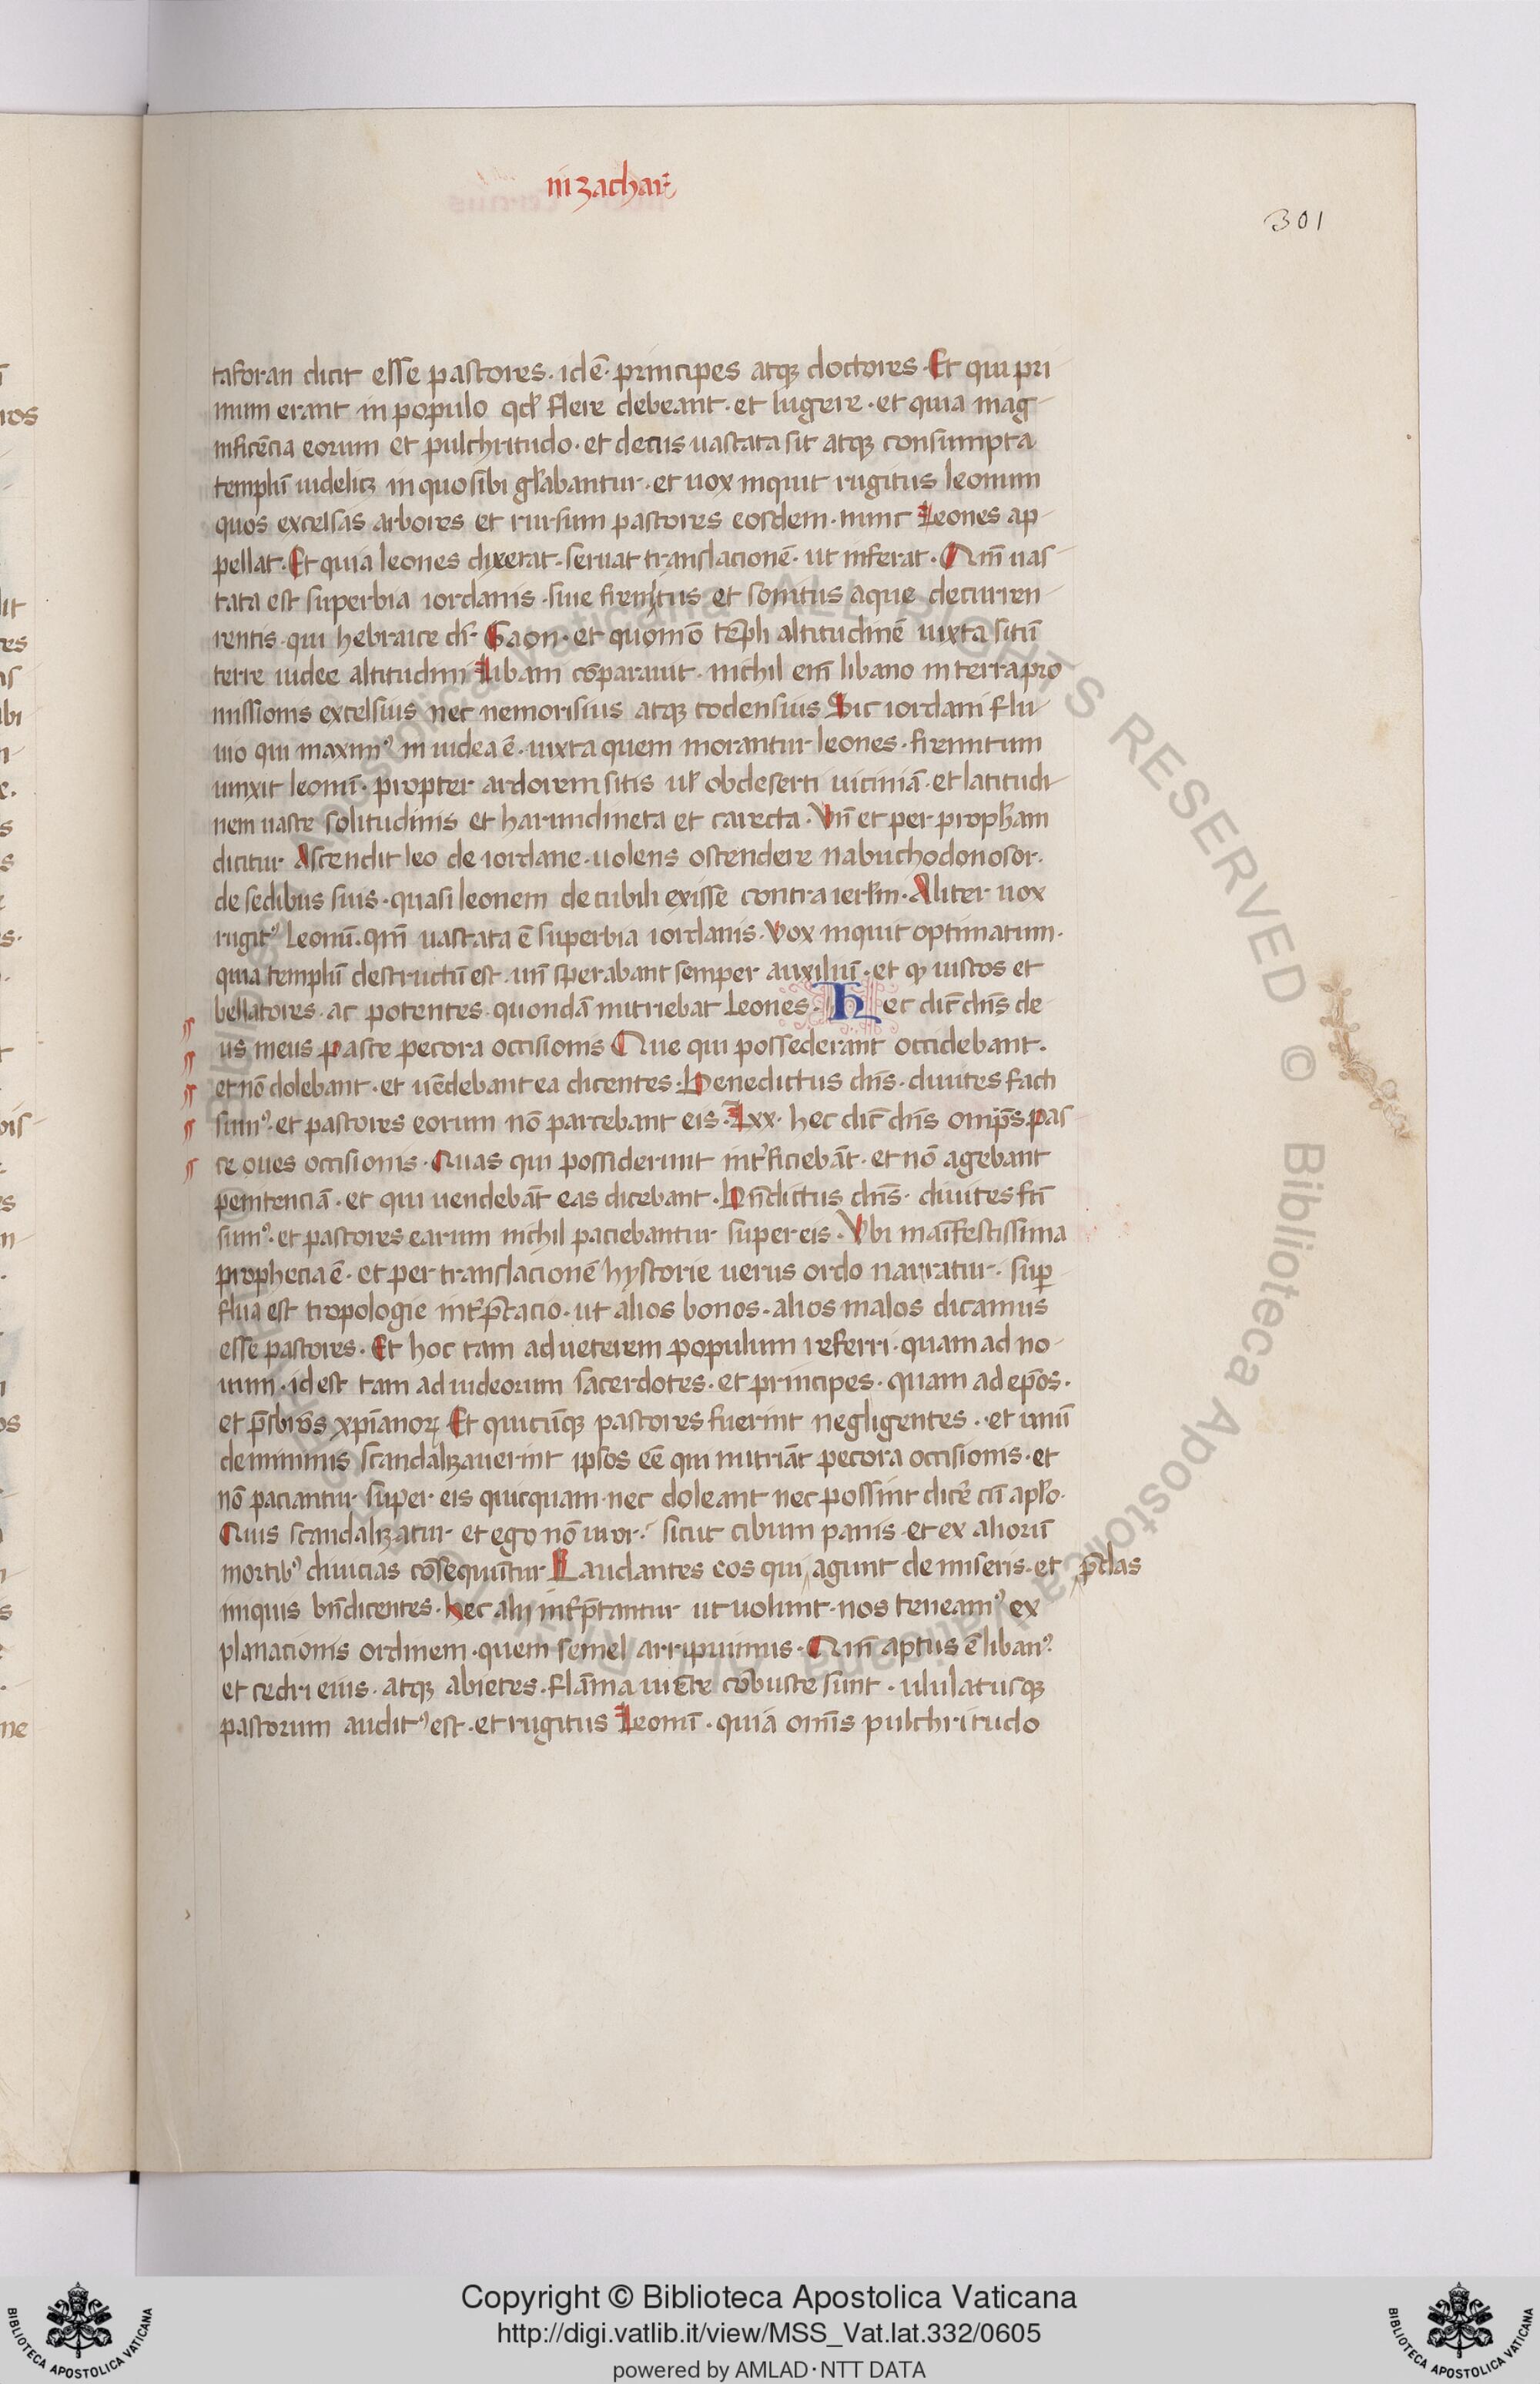 in zachar̄
301
taforan dicit esse pastores · idē · principes atqȝ doctores · Et qui pri
mum erant in populo qđ flere debeant · et lugere · et quia mag
nificēcia eorum et pulchritudo · et decus uastata sit atqȝ consumpta
templū uidelicȝ in quo sibi gl̄abantur · et uox inquit rugitus leonum
quos excelsas arbores et rursum pastores eosdem · nunc Leones ap
pellat · Et quia leones dixerat · seruat translacionē · ut inferat · Qm̄ uas
tata est superbia iordanis · siue fremitus et sonitus aque decurren
rentis · qui hebraice dr̄ Gaon · et quomō tēpli altitudinē iuxta sitū
terre iudee altitudini Libani cōparauit · nichil em̄ libano in terra pro
missionis excelsius nec nemorisius atqȝ codensius Sic iordani flu
uio qui maximꝰ in iudea ē · iuxta quem morantur leones · fremitum
iunxit leonū · propter ardorem sitis ul̄ ob deserti uiciniā · et latitudi
nem uaste solitudinis et harundineta et carecta · Vn̄ et per proph̄am
dicitur Ascendit leo de iordane · uolens ostendere nabuchodonosor ·
de sedibus suis · quasi leonem de cubili exisse contra ierl̄m · Aliter uox
rugitꝰ leonū · qm̄ uastata ē superbia iordanis · Vox inquit optimatum ·
quia templū destructū est · un̄ sperabant semper auxiliū · et qꝫ iustos et
bellatores · ac potentes · quondā nutriebat Leones · Hec dic̄ dn̄s de
us meus Pasce pecora occisionis Que qui possederant occidebant ·
et nō dolebant · et uēdebant ea dicentes · Benedictus dn̄s · diuites facti
sumꝰ · et pastores eorum nō parcebant eis · Lxx · hec dic̄ dn̄s omp̄s · Pas
ce oues occisionis · Quas qui possiderunt int̄ficiebāt · et nō agebant
penitenciā · et qui uendebāt eas dicebant · Bn̄dictus dn̄s · diuites fc̄i
sumꝰ · et pastores earum nichil paciebantur super eis · Vbi maīfestissima
prophecia ē · et per translacionē hystorie uerus ordo narratur · suꝑ
flua est tropologie int̄p̄tacio · ut alios bonos · alios malos dicamus
esse pastores · Et hoc tam ad ueterem populum referri · quam ad no
uum · id est tam ad iudeorum sacerdotes · et principes · quam ad ep̄os ·
et p̄sbiōs xp̄ianoꝝ Et quicūqȝ pastores fuerint negligentes · et unū
de minimis scandalizauerint ipsos eē qui nutriāt pecora occisionis · et
nō paciantur super eis quicquam · nec doleant nec possint dicē cū apl̄o ·
Quis scandalizatur et ego nō uror · sicut cibum panis et ex aliorū
mortibꝰ diuicias cōsequūtur Laudantes eos qui agunt de miseris · et p̄das
iniquis bn̄dicentes · Hec alij int̄p̄tantur ut uolunt · nos teneamꝰ ex
planacionis ordinem · quem semel arripuimus · Qm̄ aptus ē libanꝰ
et cedri eius · atqȝ abietes · flāma uictē cōbuste sunt · ululatusqȝ
pastorum auditꝰ est · et rugitus Leonū · quia om̄is pulchritudo
Copyright © Biblioteca Apostolica Vaticana
http://digi.vatlib.it/view/MSS_Vat.lat.332/0605
powered by AMLAD·NTT DATA